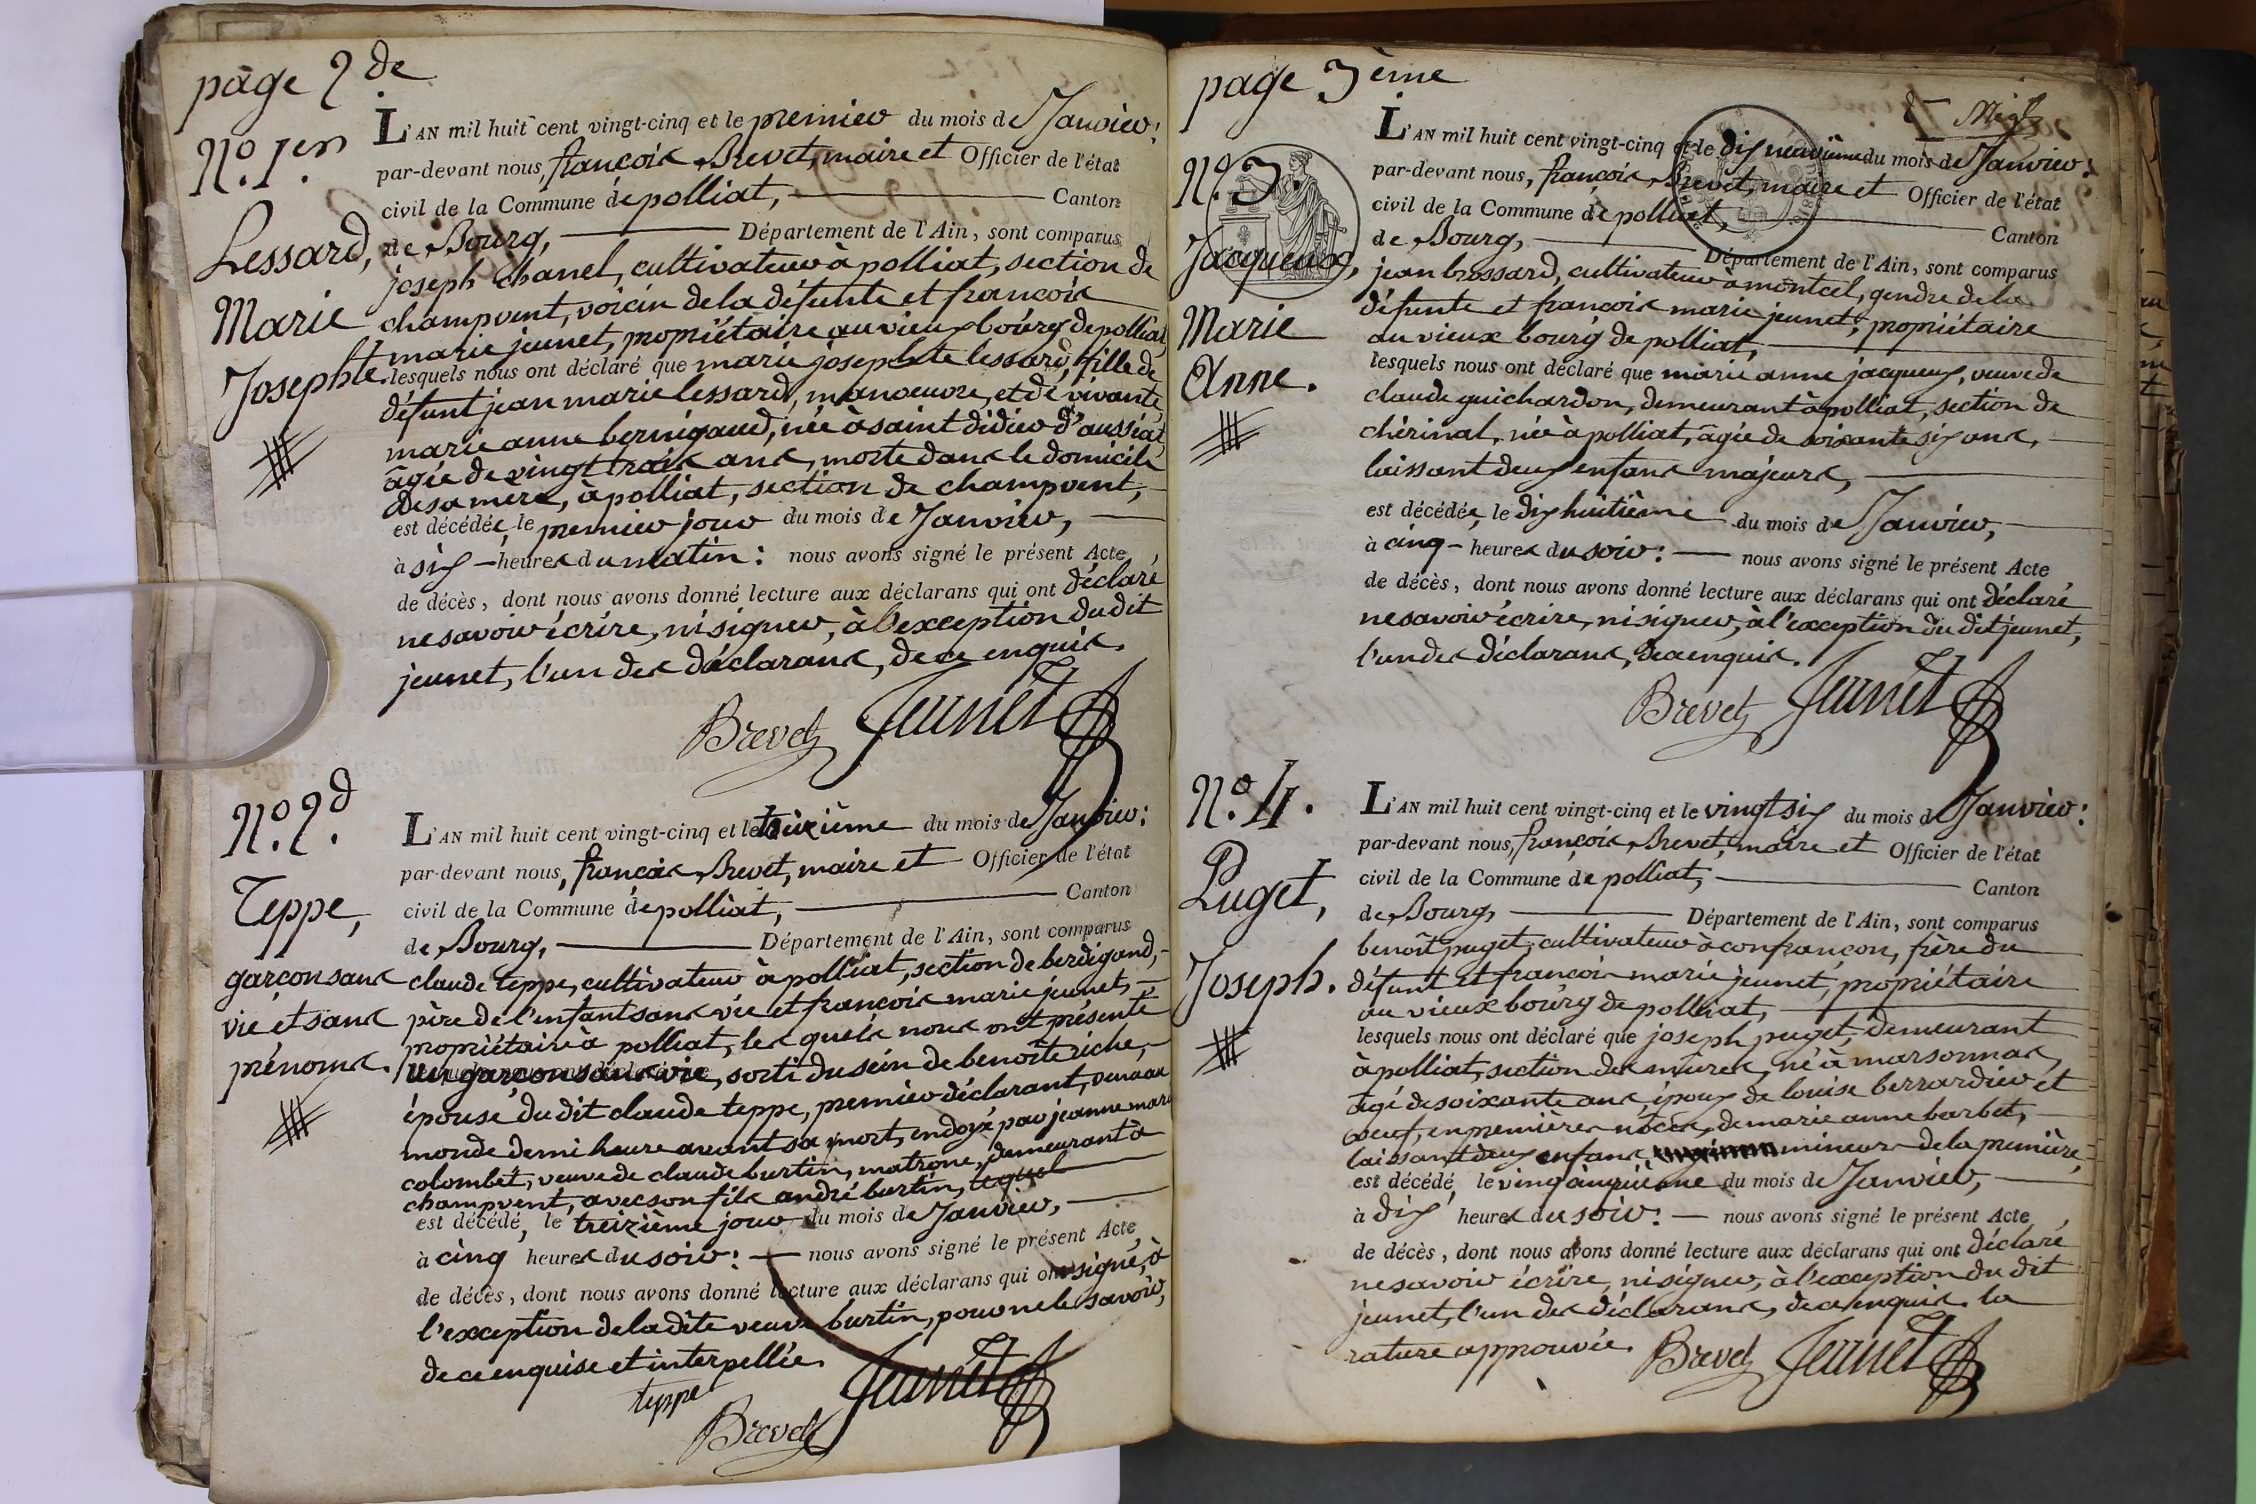 page 2de
N.o 1.er
Lessard,
Marie
Josephte.
L'AN mil huit cent vingt-cinq et le premier du mois de Janvier:
par-devant nous, françois Brevet, maire et Officier de l'état
civil de la Commune de polliat, Canton
de Bourg, Département de l'Ain, sont comparus
joseph Chanel, cultivateur à polliat, section de
champvent, voisin de la défunte et françois
marie jeunet, propriétaire au vieux bourg de polliat,
lesquels nous ont déclaré que marie josephte lessard, fille de
défunt jean marie lessard, manoeuvre, et de vivante
marie anne bernigaud, née à saint didier d'aussiat,
âgée de vingt trois ans, morte dans le domicile
de sa mère, à polliat, section de champvent,
est décédée, le premier jour du mois de Janvier,
à six heures du matin: nous avons signé le présent Acte
de décès, dont nous avons donné lecture aux déclarans qui ont déclaré
ne savoir écrire, ni signer, à l'exception du dit
jeunet, l'un des déclarans, de ce enquis.
Brevet Jeunet
N.o 2.d
Teppe,
garçon sans
vie et sans
prénoms.
L'AN mil huit cent vingt-cinq et le treizième du mois de Janvier:
par-devant nous, françois Brevet, maire et Officier de l'état
civil de la Commune de polliat, Canton
de Bourg, Département de l'Ain, sont comparus
claude teppe, cultivateur à polliat, section de berdigand,
père de l'enfant sans vie et françois marie jeunet,
propriétaire à polliat, les quels nous ont présenté
un garçon sans vie, sorti du sein de benoîte riche,
épouse du dit claude teppe, premier déclarant, venu au
monde demi heure avant sa mort, endoyé par jeanne marie
colombet, veuve de claude burtin, matrone, demeurant à
champvent, avec son fils andré burtin, lequel
est décédé, le treizième jour du mois de Janvier,
à cinq heures du soir: nous avons signé le présent Acte
de décès, dont nous avons donné lecture aux déclarans qui ont signé, à
l'exception de la dite veuve burtin, pour ne le savoir,
de ce enquise et interpellée.
teppe Jeunet
Brevet
page 3ème
N.o 3
Jacqueux,
Marie
Anne.
L'AN mil huit cent vingt-cinq et le dix neuvième du mois de Janvier:
par-devant nous, françois Brevet, maire et Officier de l'état
civil de la Commune de polliat, Canton
de Bourg, Département de l'Ain, sont comparus
jean brossard, cultivateur à montcel, gendre de la
défunte et françois marie jeunet, propriétaire
au vieux bourg de polliat,
lesquels nous ont déclaré que marie anne jacqueux, veuve de
claude guichardon, demeurant à polliat, section de
chérinal, née à polliat, âgée de soixante six ans,
laissant deux enfans majeurs,
est décédée, le dix huitième du mois de Janvier,
à cinq heures du soir: nous avons signé le présent Acte
de décès, dont nous avons donné lecture aux déclarans qui ont déclaré
ne savoir écrire, ni signer, à l'exception du dit jeunet,
l'un des déclarans, de ce enquis.
Brevet Jeunet
N.o 4.
Puget,
Joseph.
L'AN mil huit cent vingt-cinq et le vingt six du mois de Janvier:
par-devant nous, françois Brevet, maire et Officier de l'état
civil de la Commune de polliat, Canton
de Bourg, Département de l'Ain, sont comparus
benoît puget, cultivateur à confrançon, frère du
défunt et françois marie jeunet, propriétaire
au vieux bourg de polliat,
lesquels nous ont déclaré que joseph puget, demeurant
à polliat, section des mûres, né à marsonnas,
âgé de soixante ans, époux de louise berrardier et
veuf, en premières nôces, de marie anne barbet,
laissant deux enfans mineurs de la première,
est décédé, le vingt cinquième du mois de Janvier,
à dix heures du soir: nous avons signé le présent Acte
de décès, dont nous avons donné lecture aux déclarans qui ont déclaré
ne savoir écrire, ni signer, à l'exception du dit
jeunet, l'un des déclarans, de ce enquis. la
rature approuvée. Brevet Jeunet